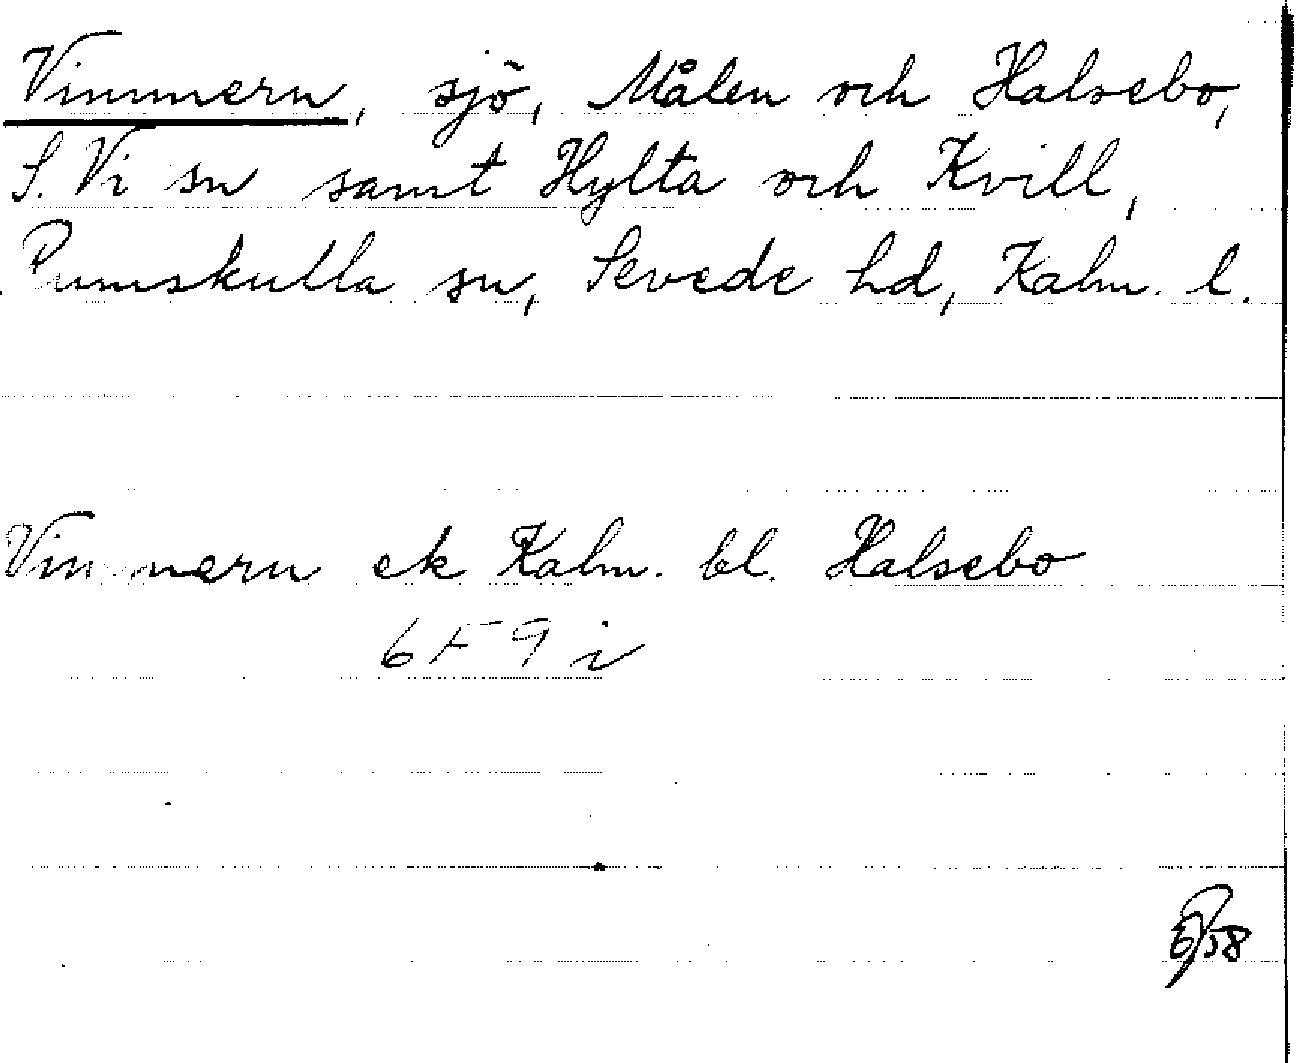 Vimmern, sjö, Målen och Halsebo,
S. Vi sn samt Hylta och Kvill,
Rumskulla sn, Sevede hd, Kalm. l.
Vimmern ek Kalm. bl. Halsebo
6F9i